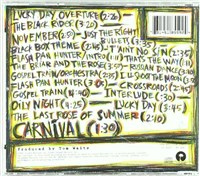 LUCKY DAY OVERTURE (2:26) -
THE BLACK RIDER (3:20) -
NOVEMBER (2:51) - JUST THE RIGHT
BULLETS (3:35) -
BLACK BOX THEME (2:41) - T'AIN'T NO SIN (2:25) -
FLASH PAN HUNTER/INTRO (1:10) - THAT'S THE WAY (1:11) -
THE BRIAR AND THE ROSE (3:50) - RUSSIAN DANCE (3:10) -
GOSPEL TRAIN/ORCHESTRA (2:31) - I'LL SHOOT THE MOON (3:49) -
FLASH PAN HUNTER (3:09) - CROSSROADS (2:43) -
GOSPEL TRAIN (4:40) - INTERLUDE (:30) -
OILY NIGHT (4:25) - LUCKY DAY (3:45)
THE LAST ROSE OF SUMMER (2:10)
CARNIVAL (1:30)
Produced by Tom Waits